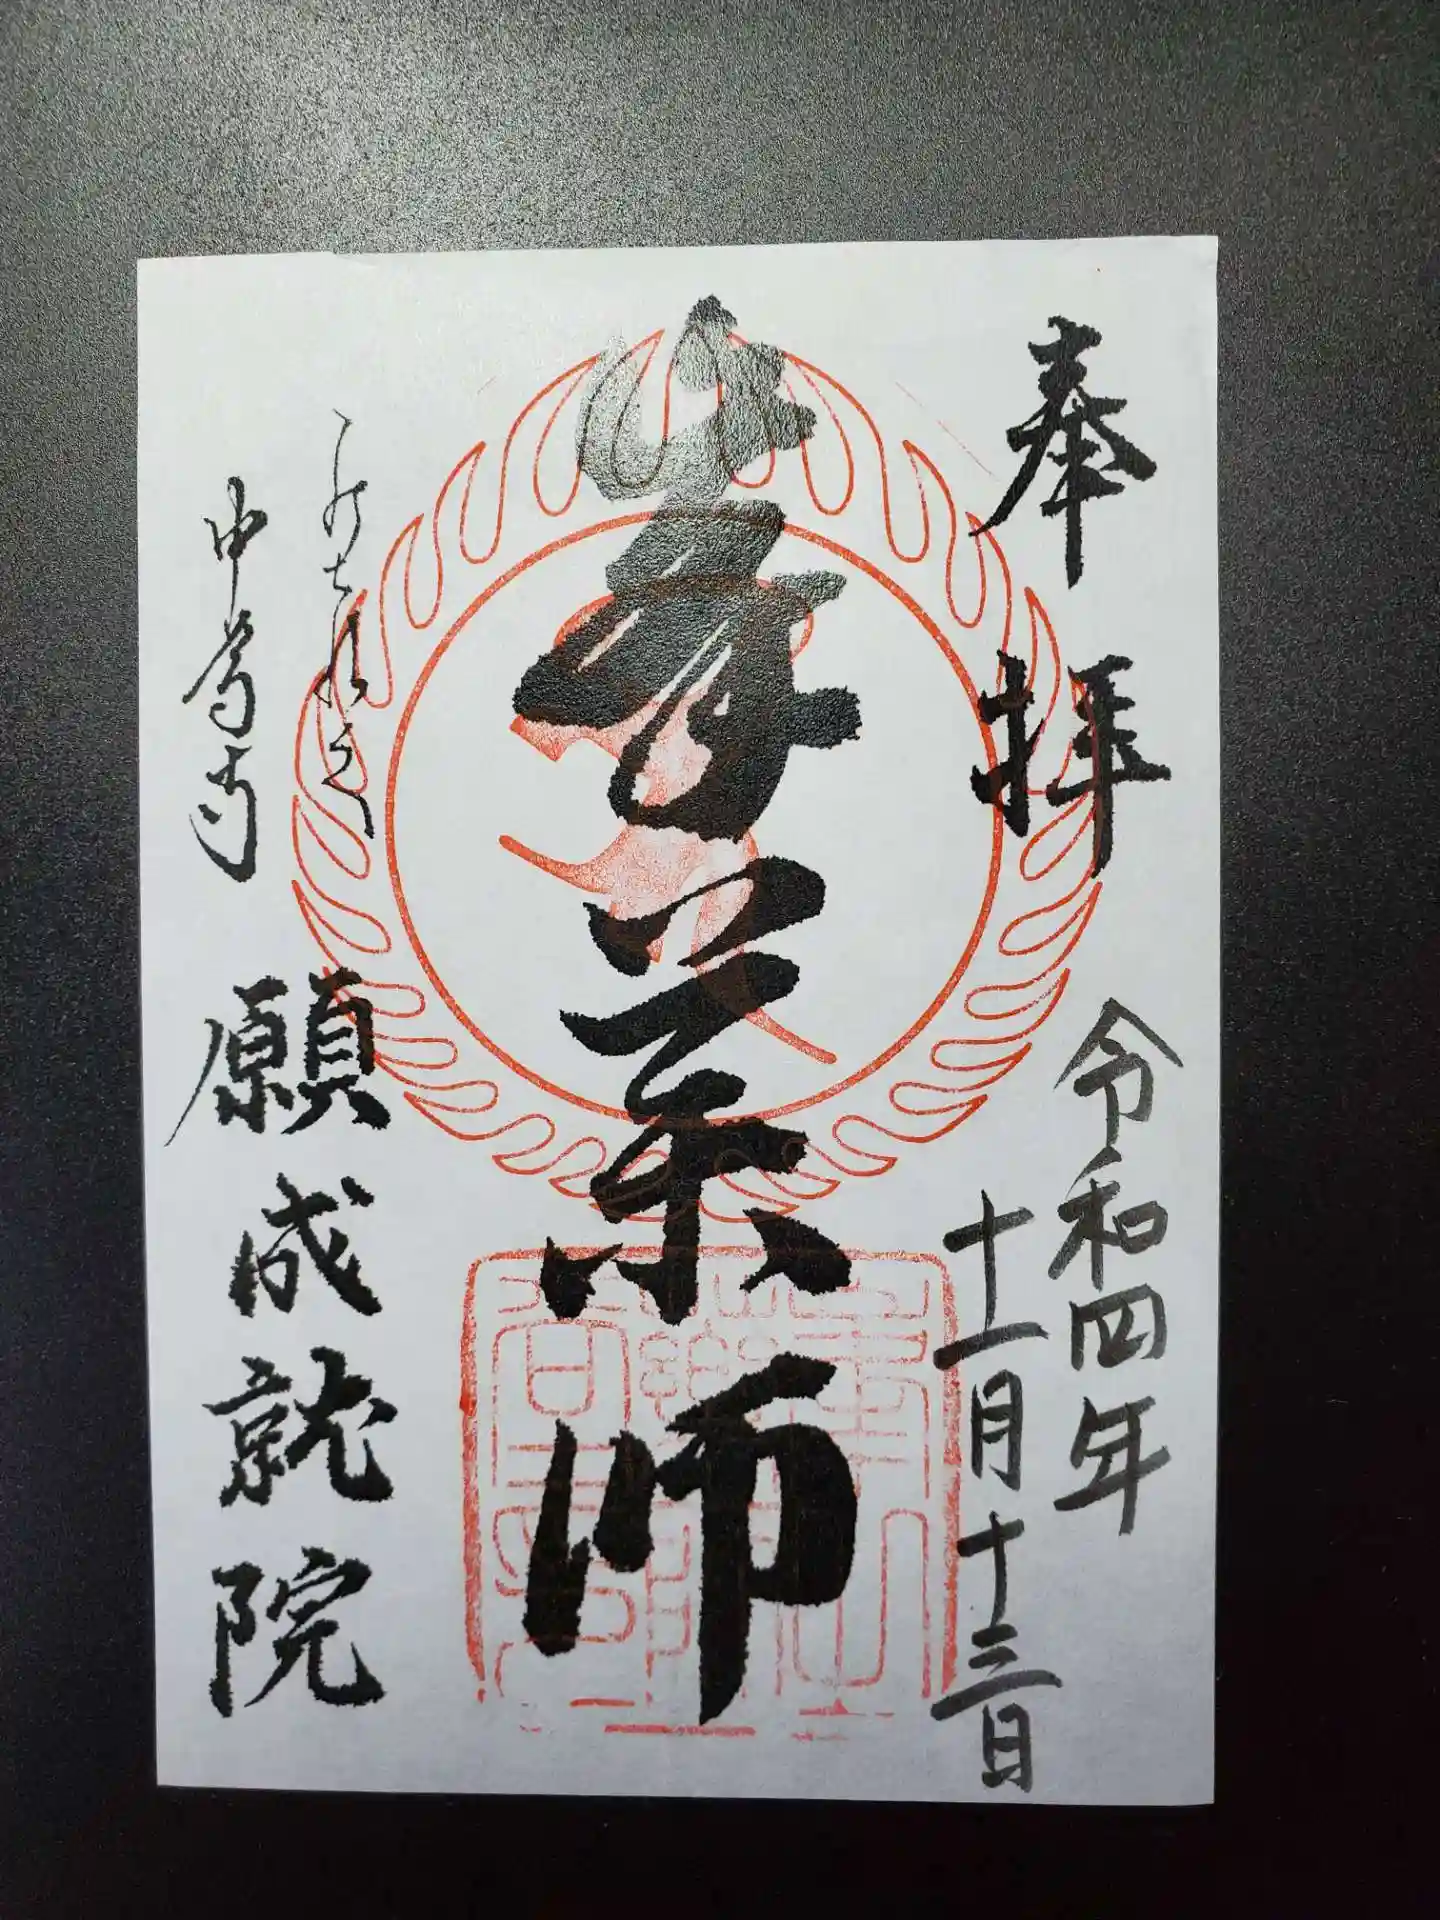 奉拝
令和四年
十一月十三日
峯薬師
中尊寺
願成就院